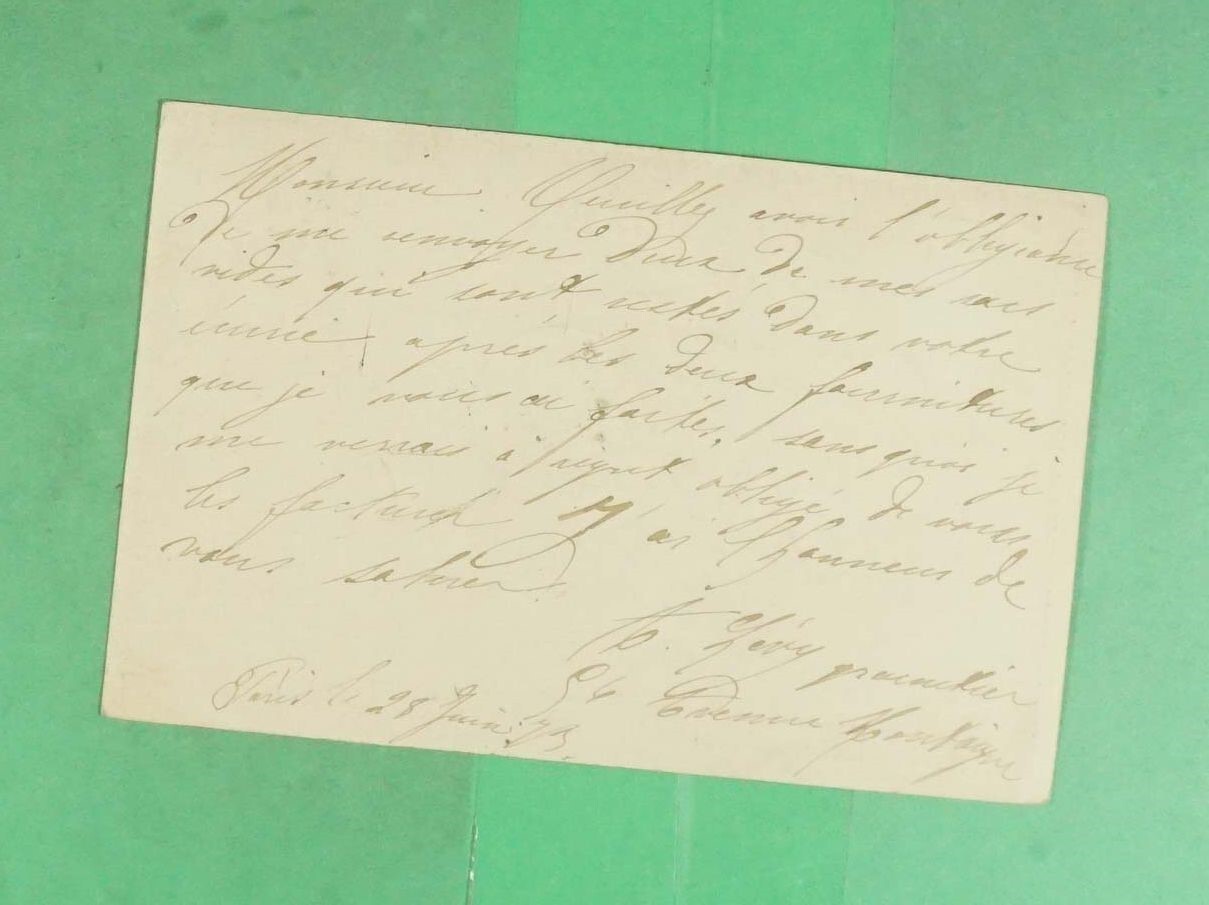 Monsieur Veuillez avoir l'obligeance
de me renvoyer Deux de mes sacs
vides qui sont restés dans votre
écurie, après les deux fournitures
que je vous ai faites, sans quoi je
me verrais à regret obligé de vous
les facturer J'ai l'honneur de
vous saluer.
Lévy grainetier
54 Avenue Montaigne
Paris le 28 Juin 73.